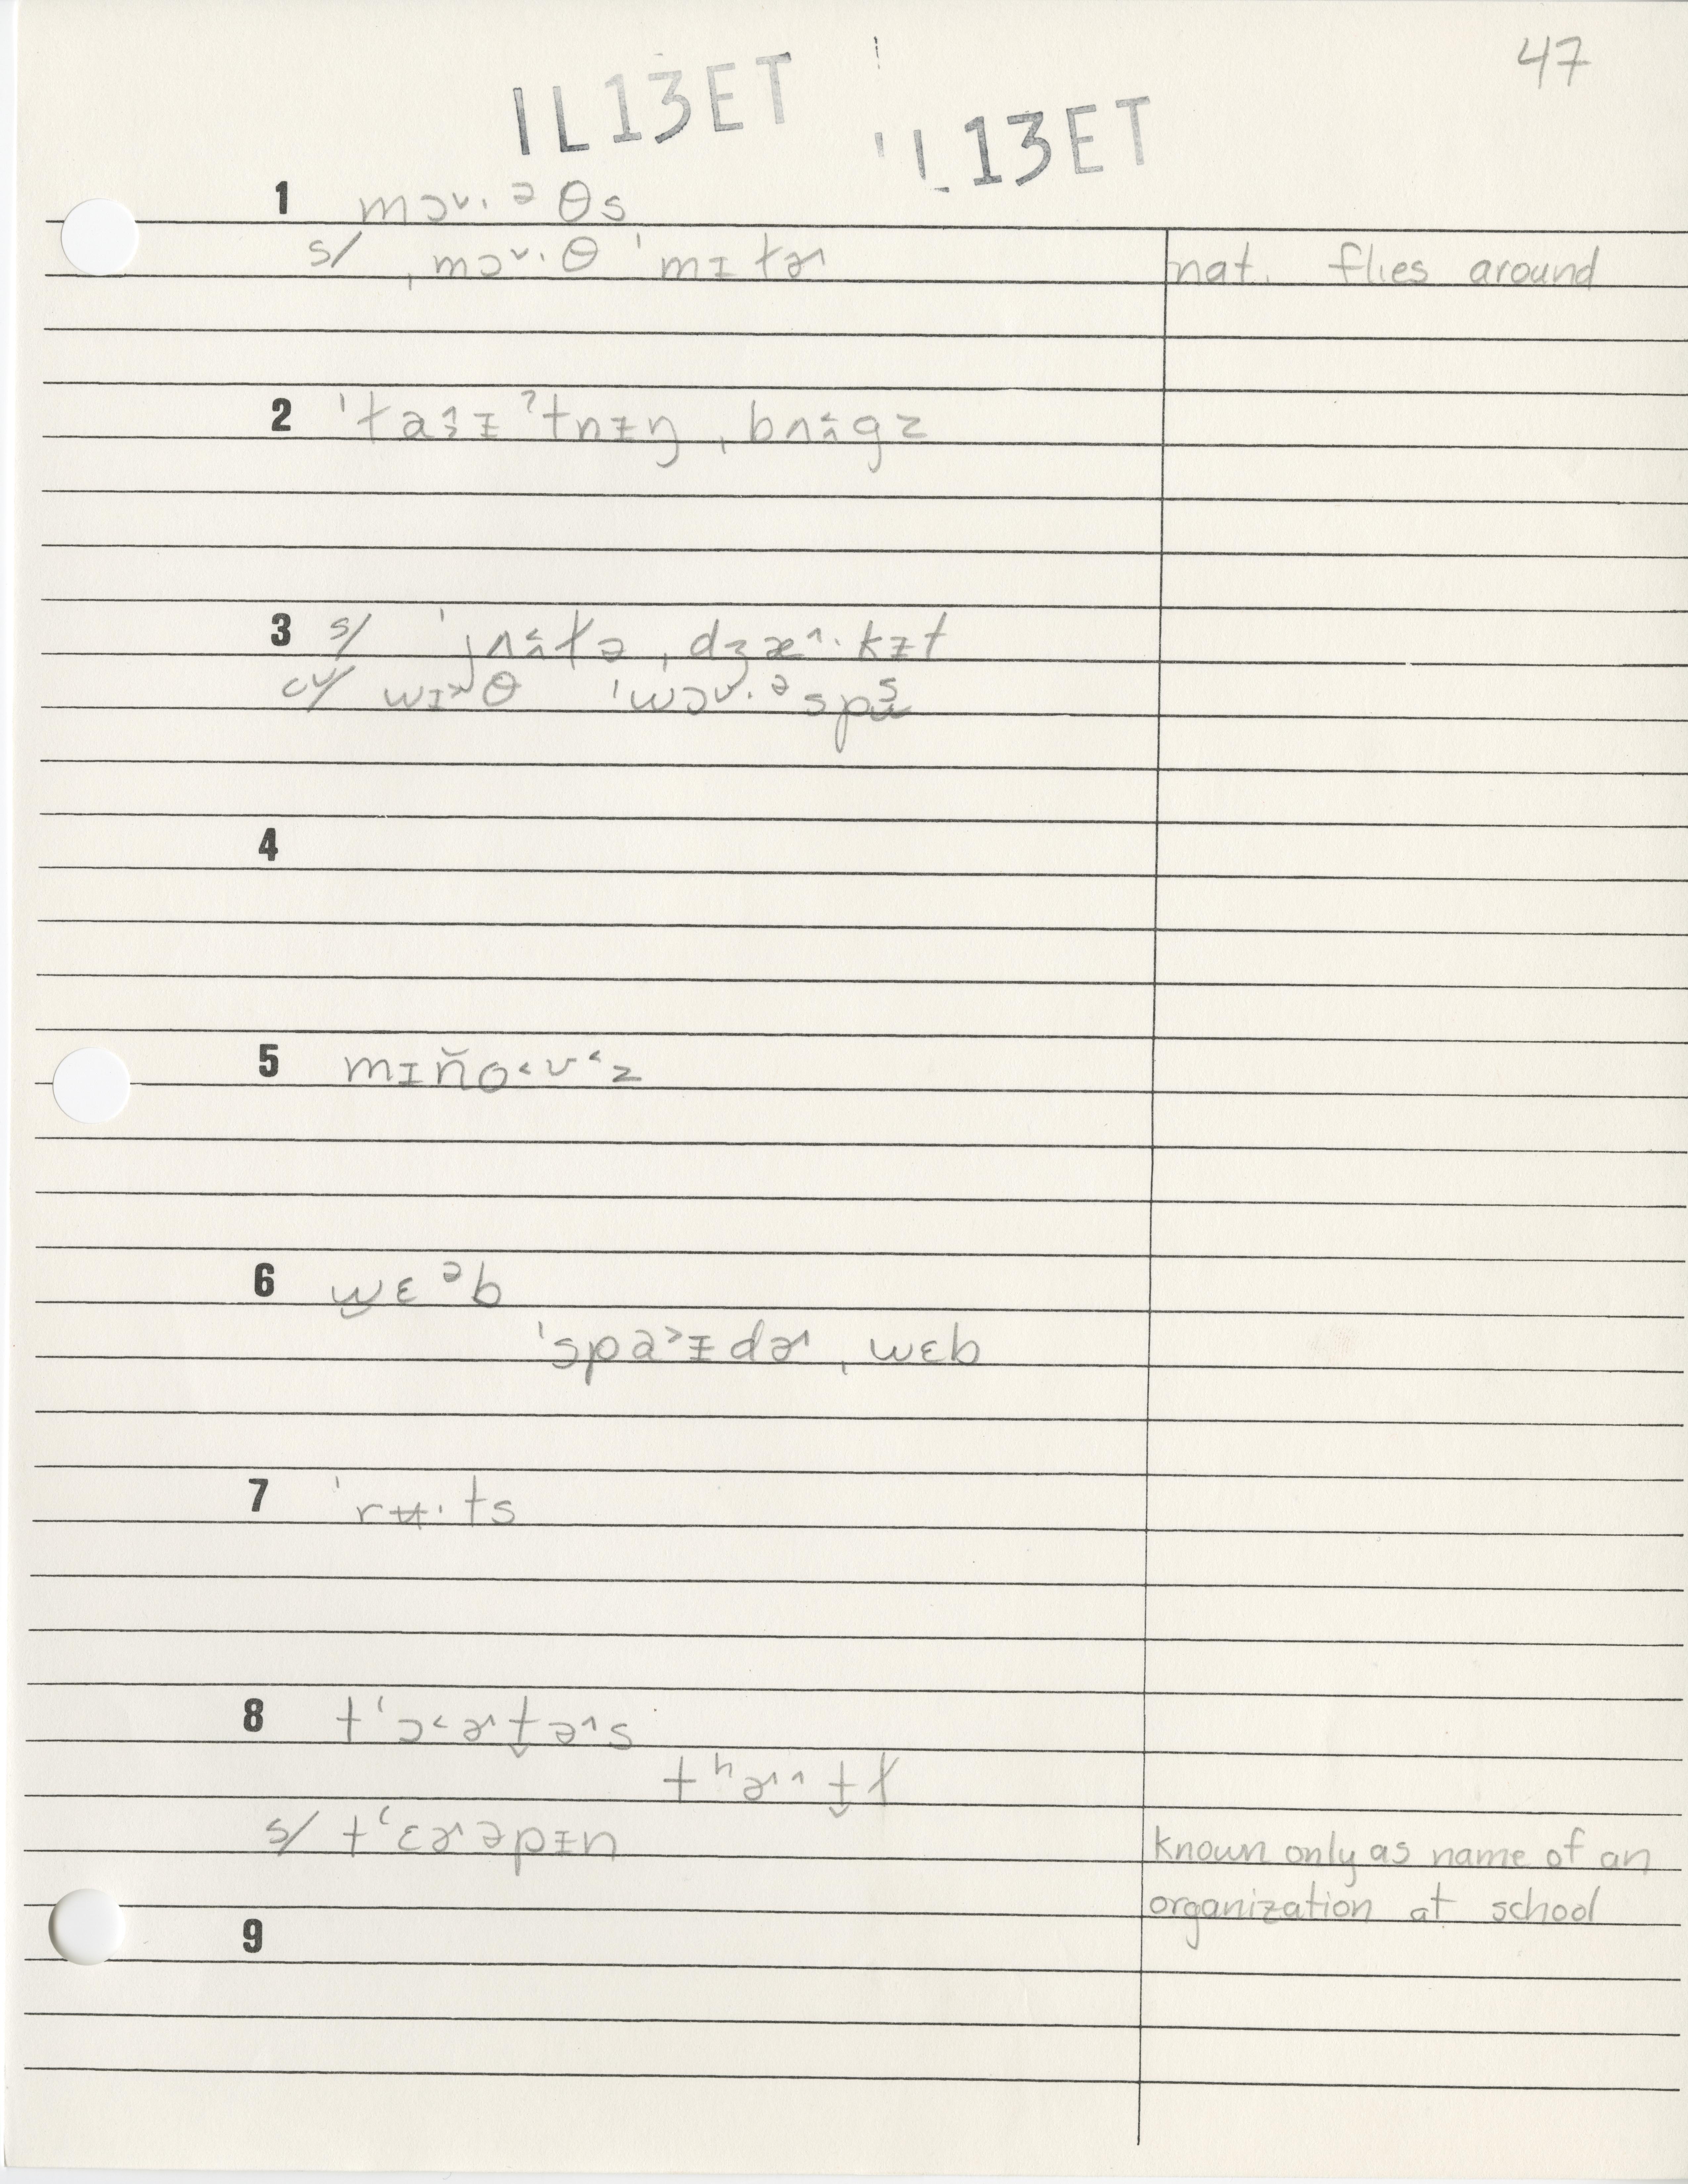 47
IL13ET
'L13ET
1 mɔᵛ·ᵊθs
s/ ˌmɔᵛ·θ ˈmɪɫɚ
nat. flies around
2 ˈɫaᵻˀtnᵻŋ ˌbʌgz
3 s/ ˈjʌɫə ˌdʒæ^·kᵻt
cv/ wɪθ ˈwɔᵛ·ᵊsps
4
5 mɪňo˂ʊ˂z
6 wɛᵊb
ˈspa˃ᵻdɚ ˌwɛb
7 ˈrʉ·ts
8 tʻɔ˂ɚt̬ɚs
tʰɚt̬ɫ
s/ tʻɛɚəpᵻn
known only as name of an
organization at school
9